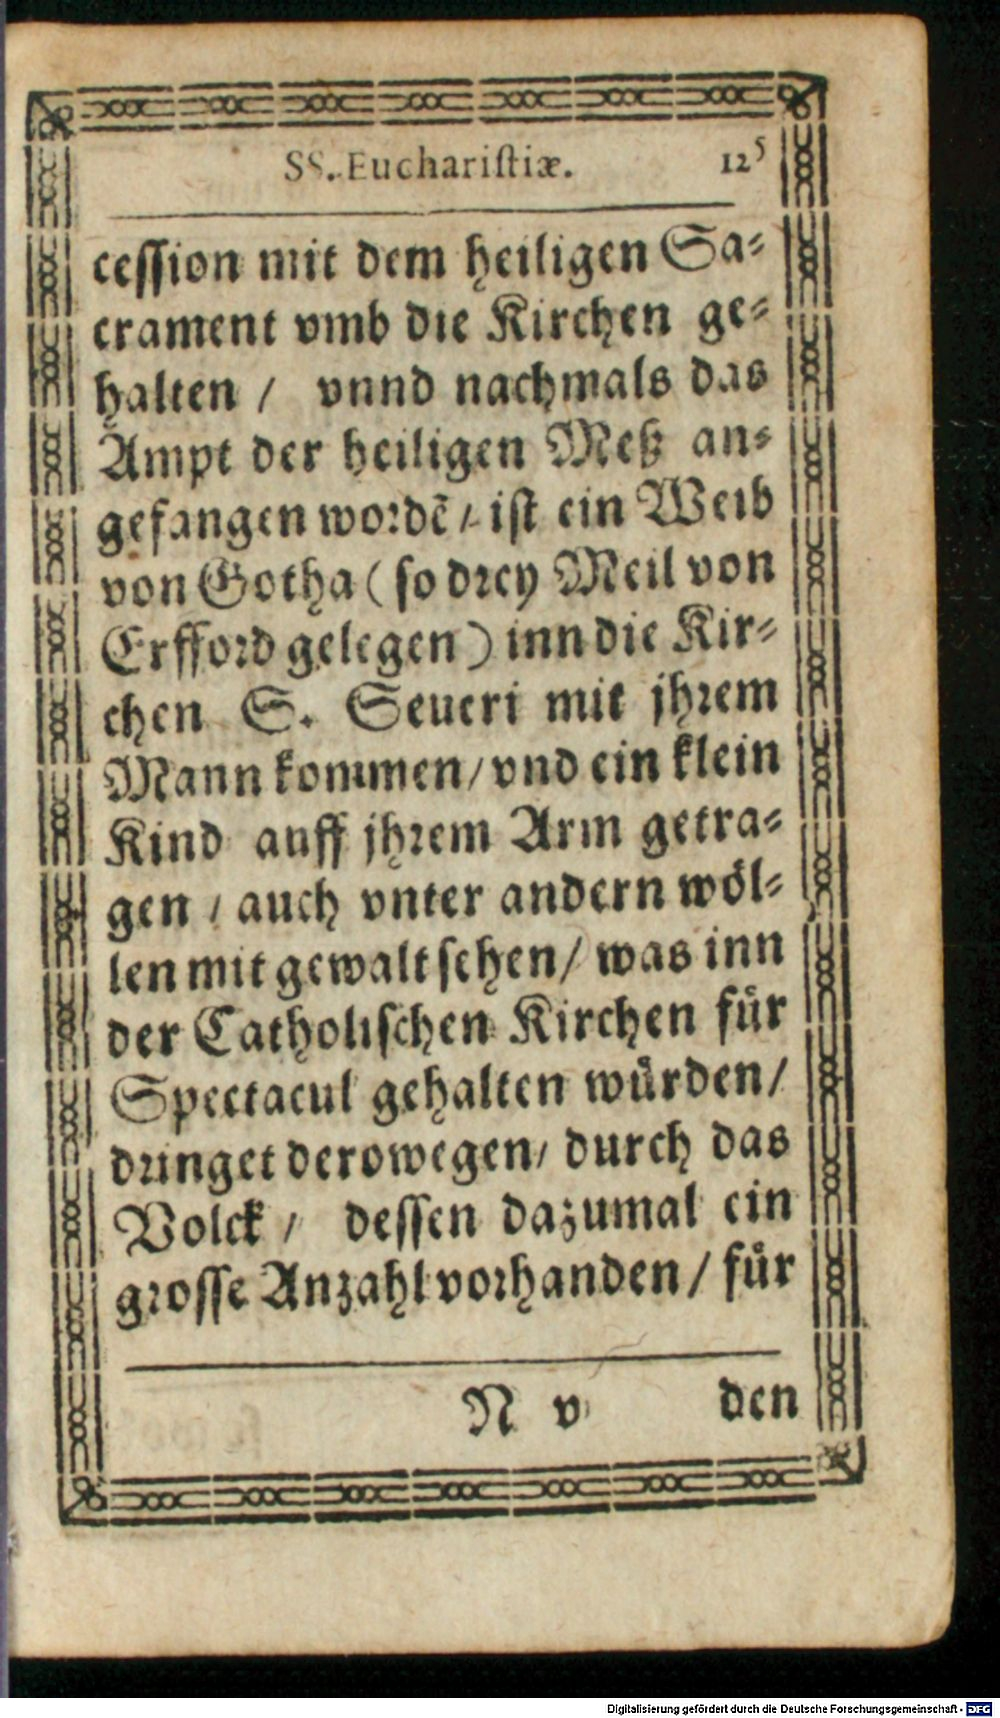 SS. Euchariſtiæ. 125
ceſſion mit dem heiligen Sa-
crament vmb die Kirchen ge-
halten / vnnd nachmals das
Ampt der heiligen Meß an-
gefangen wordẽ / iſt ein Weib
von Gotha (ſo drey Meil von
Erfford gelegen) inn die Kir-
chen S. Seueri mit jhrem
Mann kommen / vnd ein klein
Kind auff jhrem Arm getra-
gen / auch vnter andern wöl-
len mit gewalt ſehen / was inn
der Catholiſchen Kirchen für
Spectacul gehalten würden /
dringet derowegen / durch das
Volck / deſſen dazumal ein
groſſe Anzahl vorhanden / für
N v den
Digitalisierung gefördert durch die Deutsche Forschungsgemeinschaft - DFG